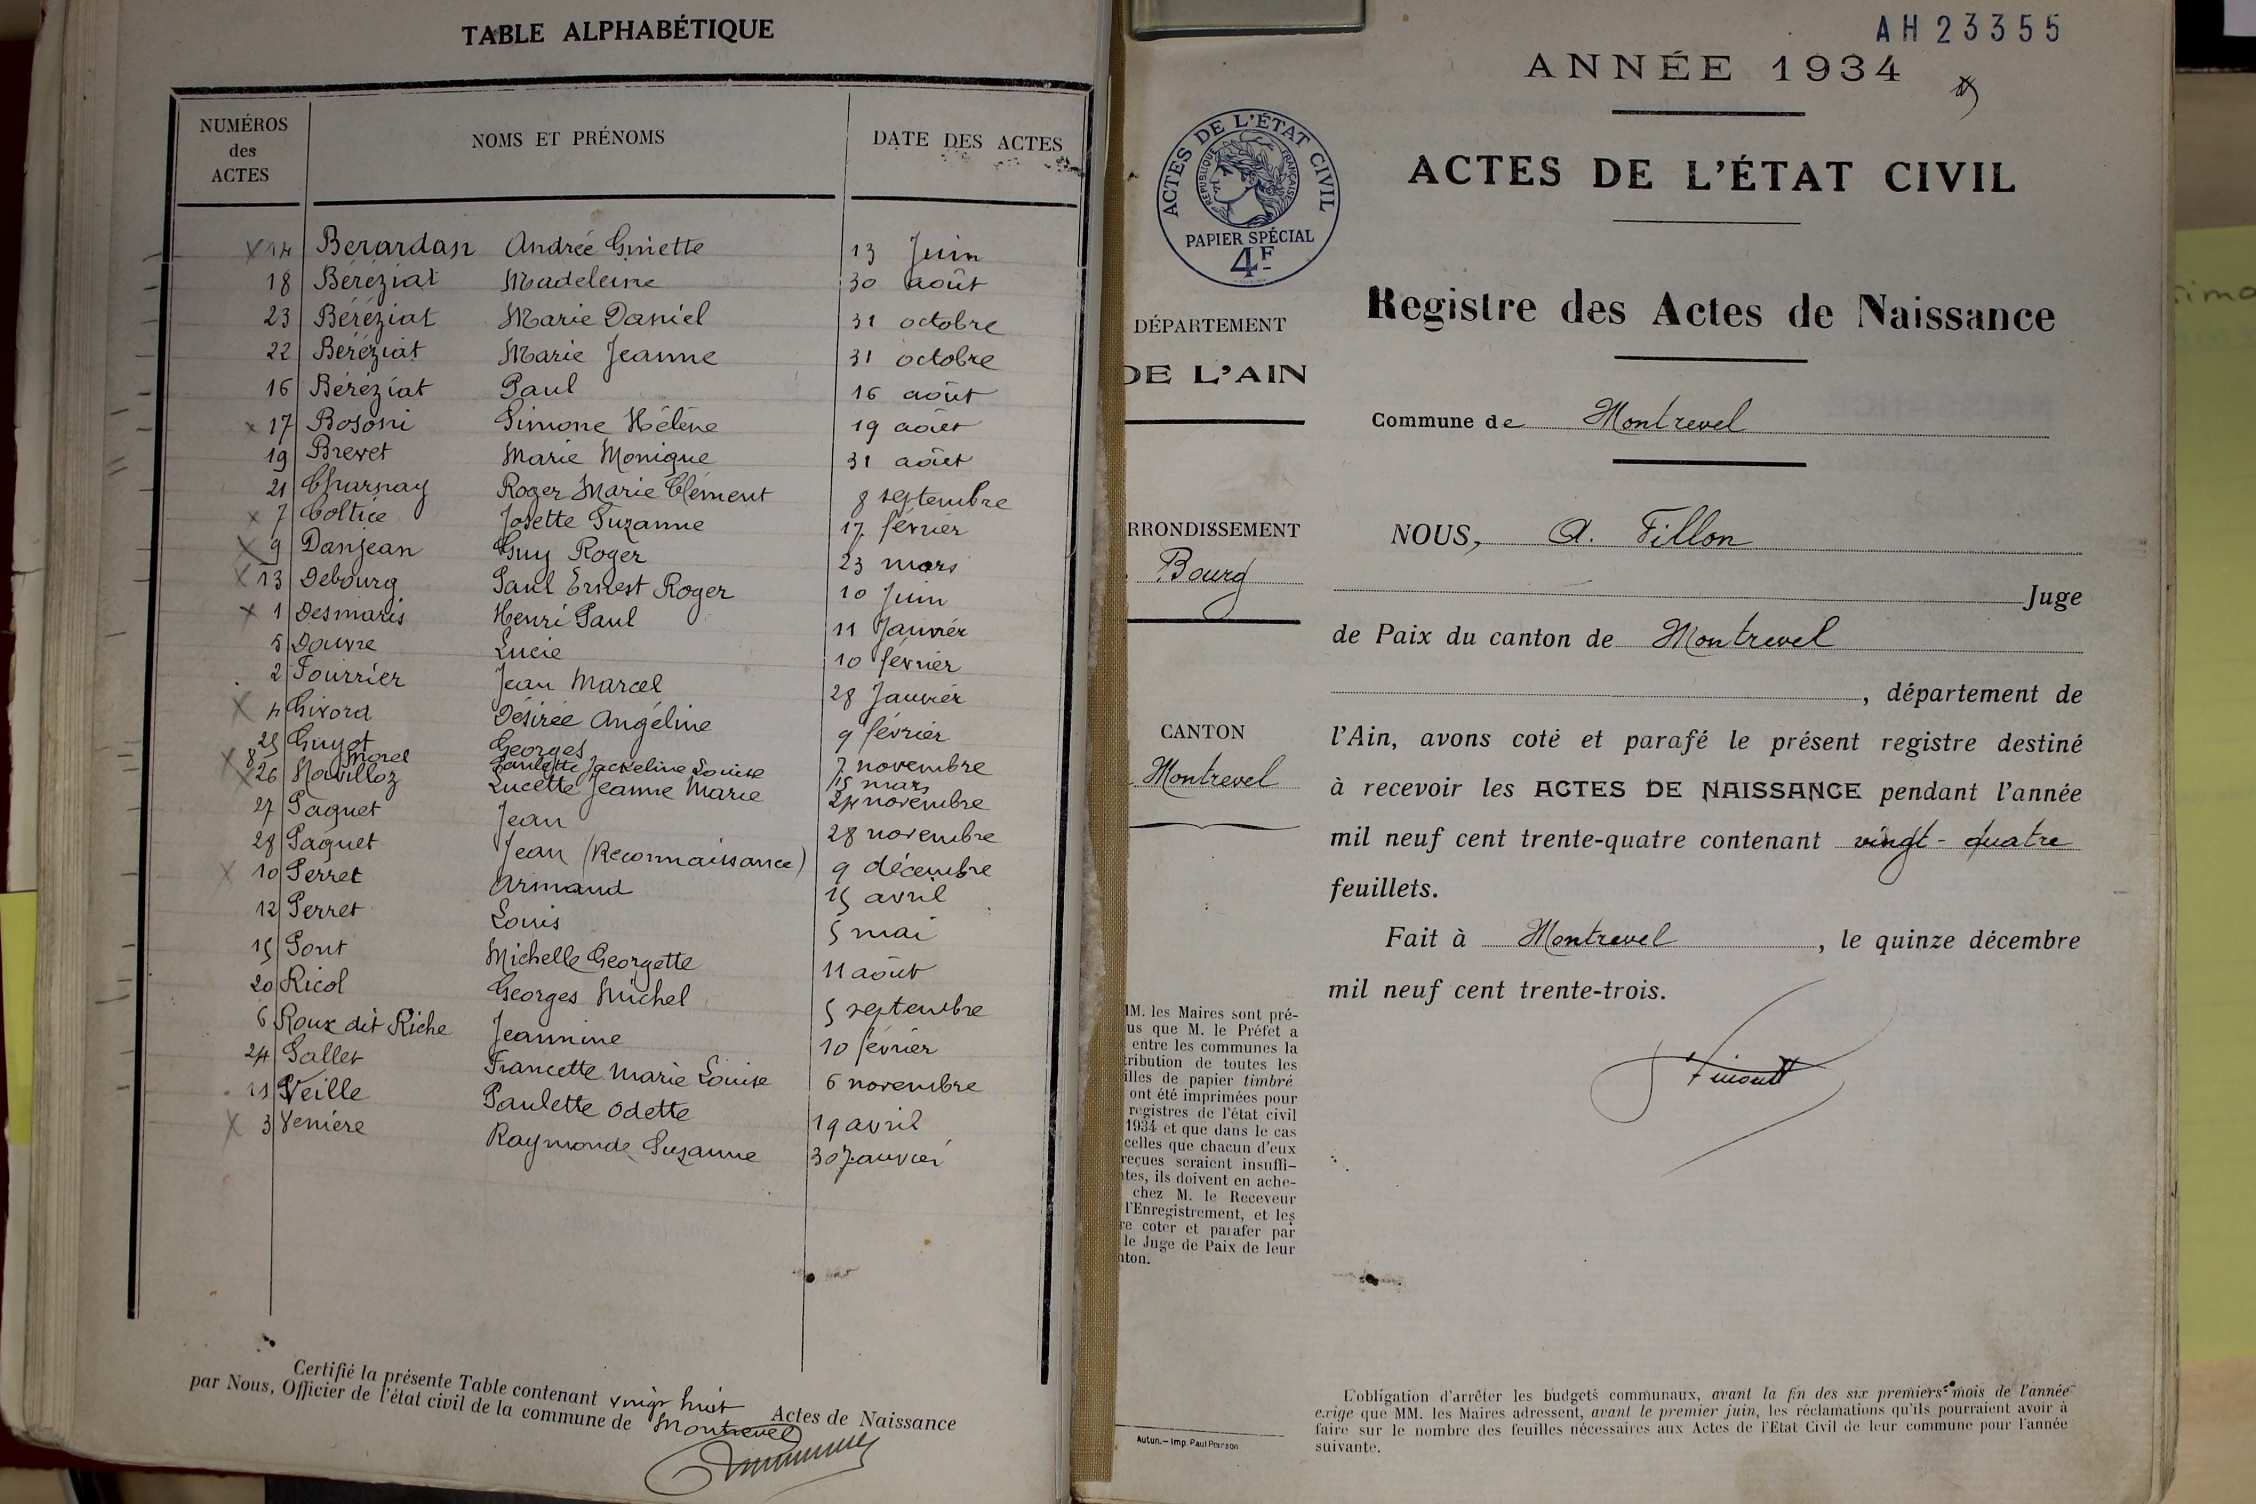 TABLE ALPHABÉTIQUE
NUMÉROS des ACTES NOMS ET PRÉNOMS DATE DES ACTES
14 Berardan Andrée Ginette 13 Juin
18 Béréziat Madeleine 30 août
23 Béréziat Marie Daniel 31 octobre
22 Béréziat Marie Jeanne 31 octobre
16 Béréziat Paul 16 août
17 Bosoni Simone Hélène 19 août
19 Brevet Marie Monique 31 août
21 Charnay Roger Marie Clément 8 septembre
7 Coltice Josette Suzanne 17 février
9 Danjean Guy Roger 23 mars
13 Debourg Paul Ernest Roger 10 Juin
1 Desmaris Henri Paul 11 Janvier
5 Douvre Lucie 10 février
2 Fourrier Jean Marcel 28 Janvier
4 Givord Désirée Angéline 9 février
25 Guyot Georges 7 novembre
8 Morel Paulette Jackeline Louise 15 mars
26 Novilloz Lucette Jeanne Marie 24 novembre
27 Paquet Jean 28 novembre
28 Paquet Jean (Reconnaissance) 9 décembre
10 Perret Armand 15 avril
12 Perret Louis 5 mai
15 Pont Michelle Georgette 11 août
20 Ricol Georges Michel 5 septembre
6 Roux dit Riche Jeannine 10 février
24 Sallet Francette Marie Louise 6 novembre
11 Veille Paulette Odette 19 avril
3 Venière Raymonde Suzanne 30 Janvier
Certifié la présente Table contenant vingt huit Actes de Naissance
par Nous, Officier de l'état civil de la commune de Montrevel
AH 23355
ANNÉE 1934
ACTES DE L'ÉTAT CIVIL
Registre des Actes de Naissance
Commune de Montrevel
ACTES DE L'ÉTAT CIVIL
RÉPUBLIQUE FRANÇAISE
PAPIER SPÉCIAL
4F
DÉPARTEMENT
DE L'AIN
RRONDISSEMENT
Bourg
CANTON
Montrevel
MM. les Maires sont pré-
us que M. le Préfet a
entre les communes la
tribution de toutes les
illes de papier timbré
ont été imprimées pour
registres de l'état civil
1934 et que dans le cas
celles que chacun d'eux
reçues seraient insuffi-
ntes, ils doivent en ache-
chez M. le Receveur
l'Enregistrement, et les
re coter et parafer par
le Juge de Paix de leur
nton.
Autun.—Imp. Paul Pernson
NOUS, A. Fillon
Juge
de Paix du canton de Montrevel
, département de
l'Ain, avons coté et parafé le présent registre destiné
à recevoir les ACTES DE NAISSANCE pendant l'année
mil neuf cent trente-quatre contenant vingt-quatre
feuillets.
Fait à Montrevel, le quinze décembre
mil neuf cent trente-trois.
L'obligation d'arrêter les budgets communaux, avant la fin des six premiers mois de l'année
exige que MM. les Maires adressent, avant le premier juin, les réclamations qu'ils pourraient avoir à
faire sur le nombre des feuilles nécessaires aux Actes de l'Etat Civil de leur commune pour l'année
suivante.